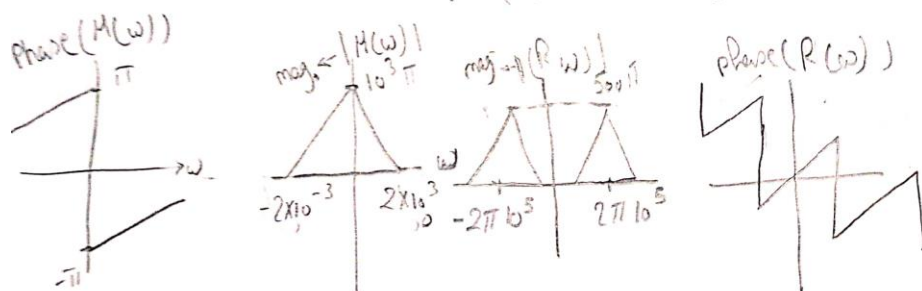 phase(M(ω))
π
-π
ω
mag. |M(ω)|
10³ π
-2×10⁻³
2×10³
,0
ω
mag. |R(ω)|
500π
-2π10⁵
2π10⁵
phase(R(ω))